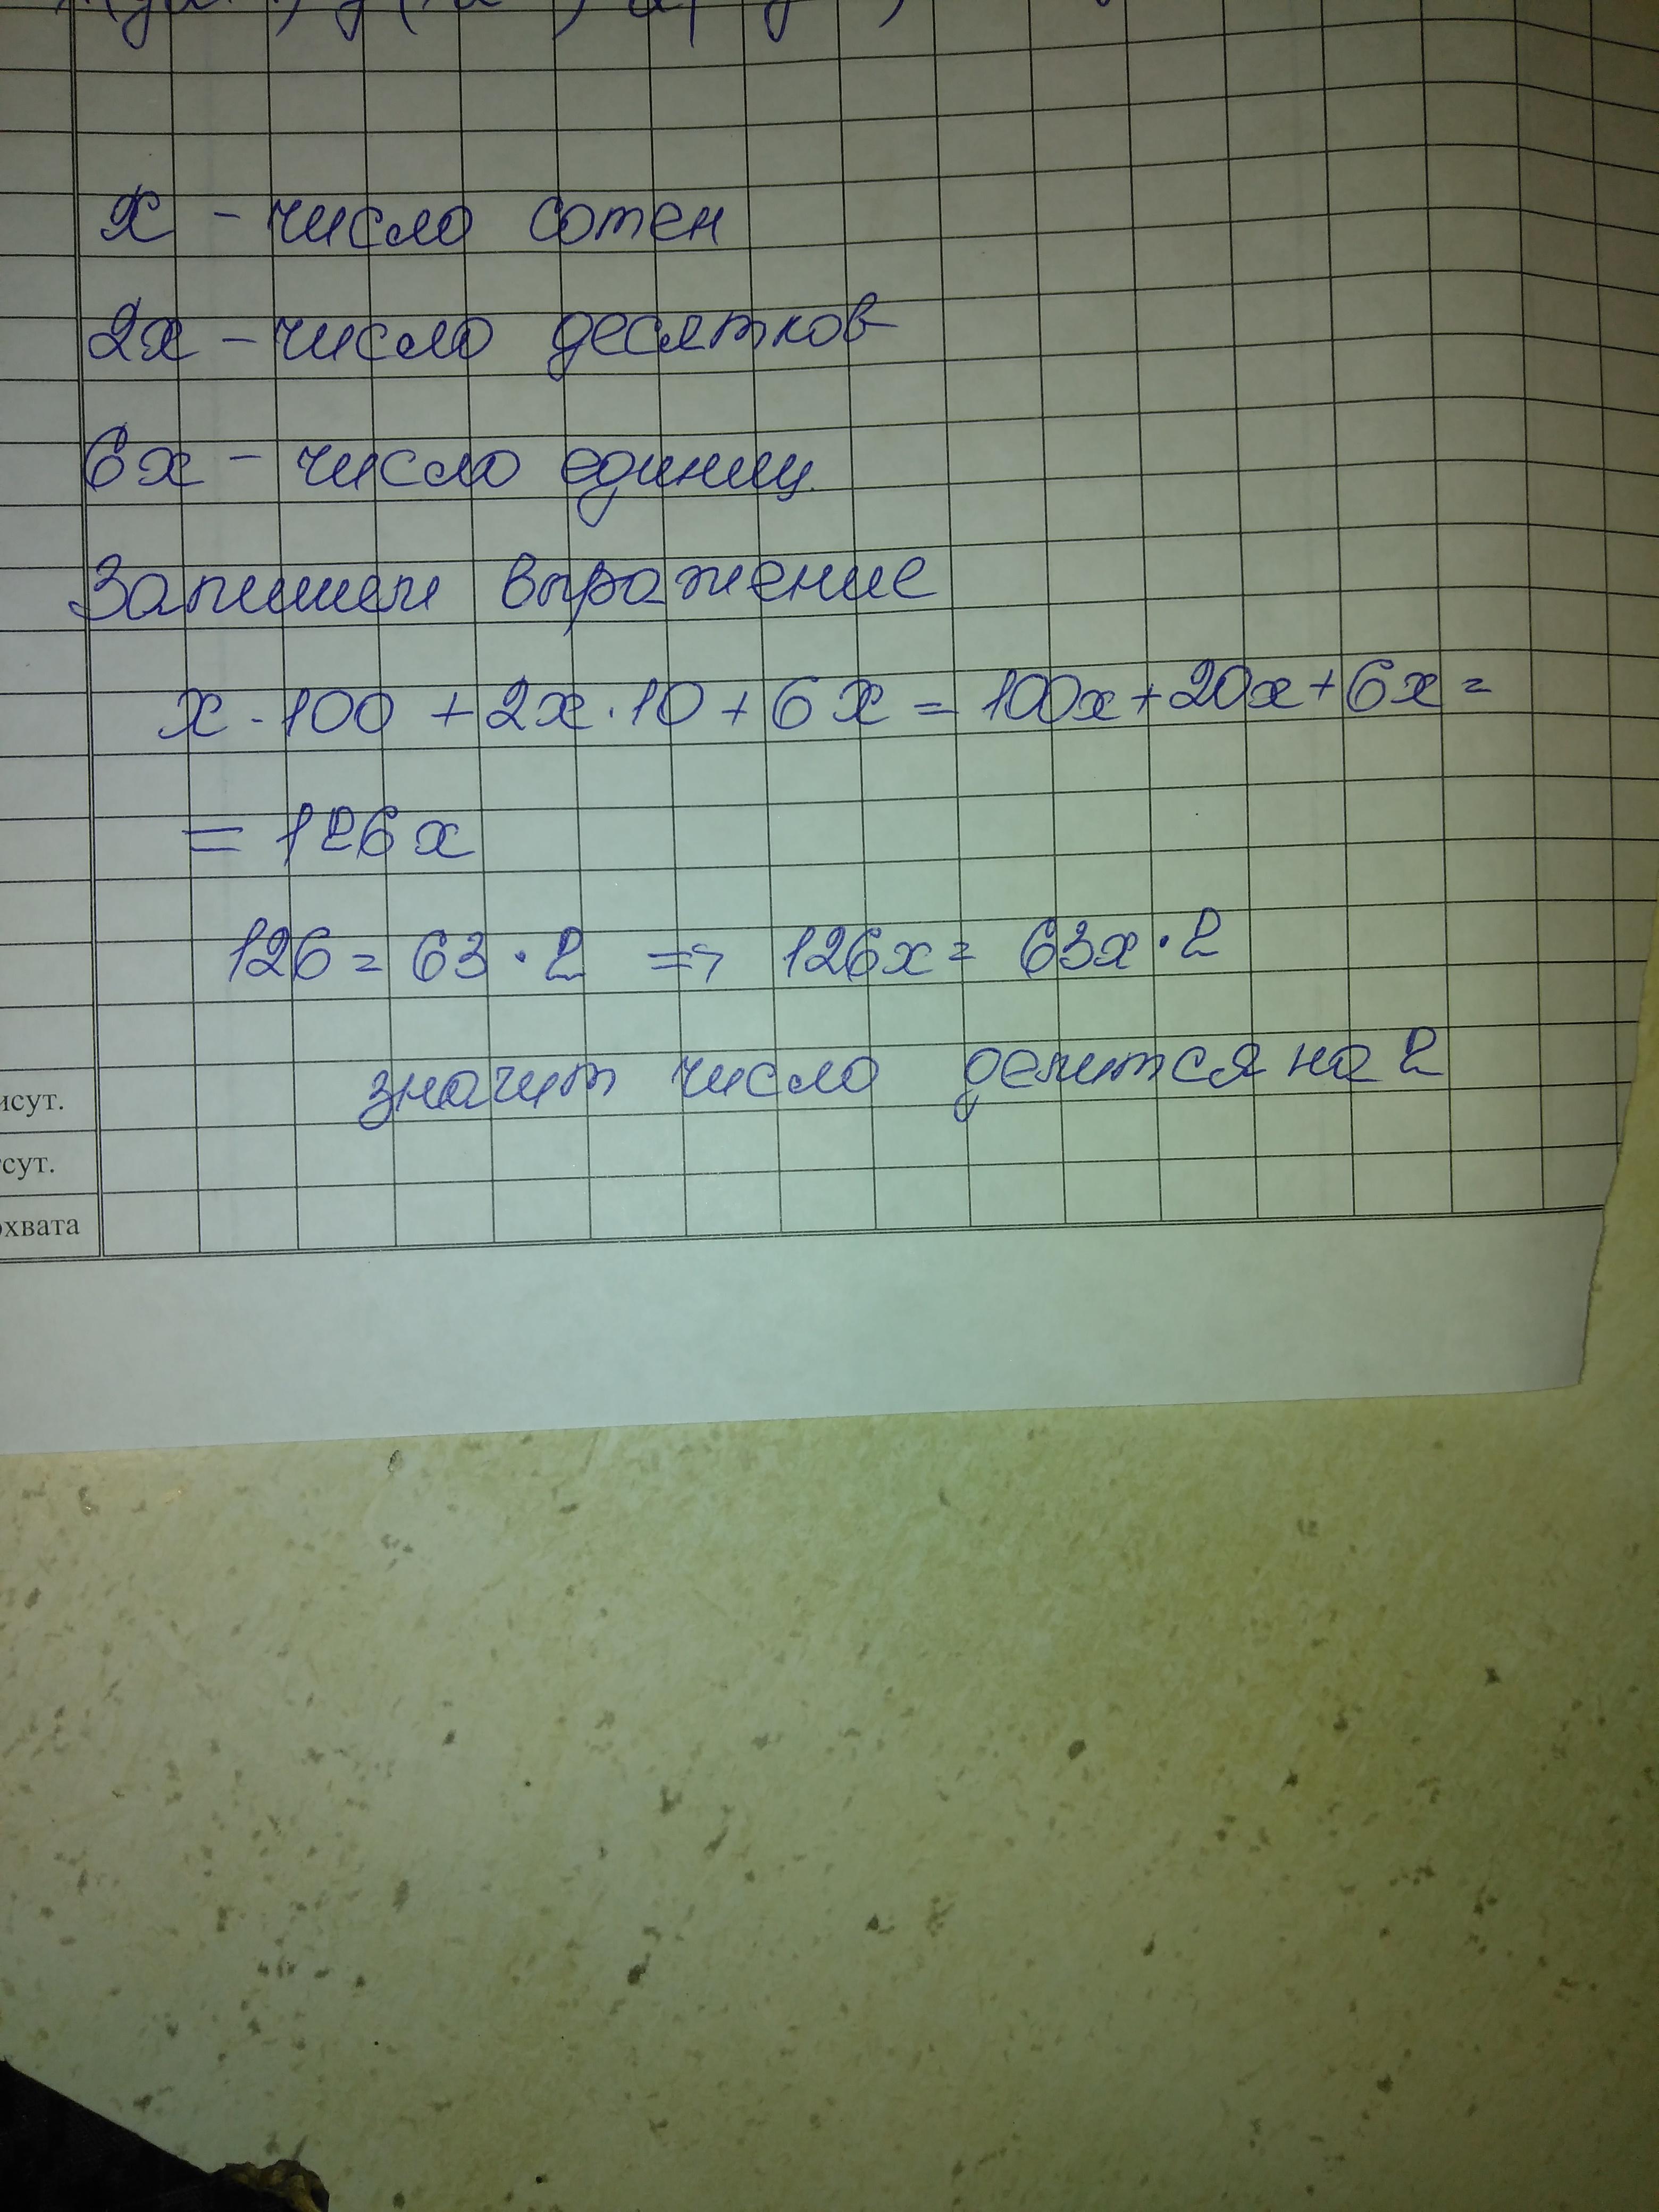 x - число сотен
2x - число десятков
6x - число единиц.
Запишем выражение
x · 100 + 2x · 10 + 6x = 100x + 20x + 6x =
= 126x
126 = 63 · 2 => 126x = 63x · 2
значит число делится на 2
исут.
сут.
охвата